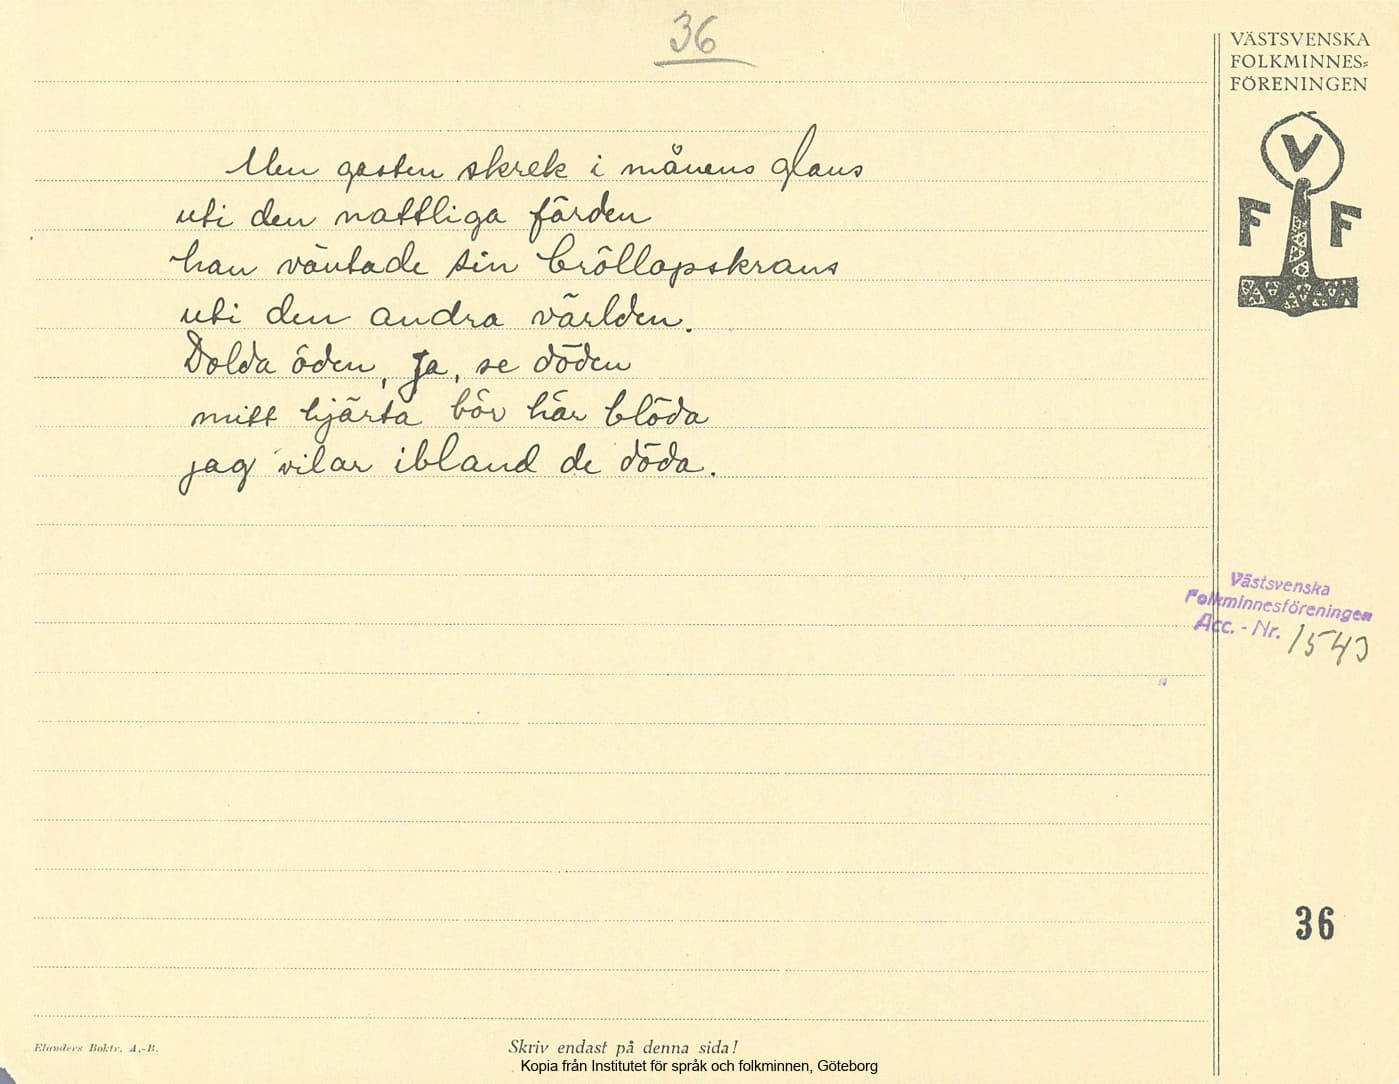 36
VÄSTSVENSKA
FOLKMINNES=
FÖRENINGEN
V
F F
Men gasten skrek i månens glans
uti den nattliga färden
han väntade sin bröllopskrans
uti den andra världen.
Dolda öden, ja, se döden
mitt hjärta bör här blöda
jag vilar ibland de döda.
Västsvenska
Folkminnesföreningen
Acc. - Nr. 1543
36
Elanders Boktr. A.-B.
Skriv endast på denna sida!
Kopia från Institutet för språk och folkminnen, Göteborg